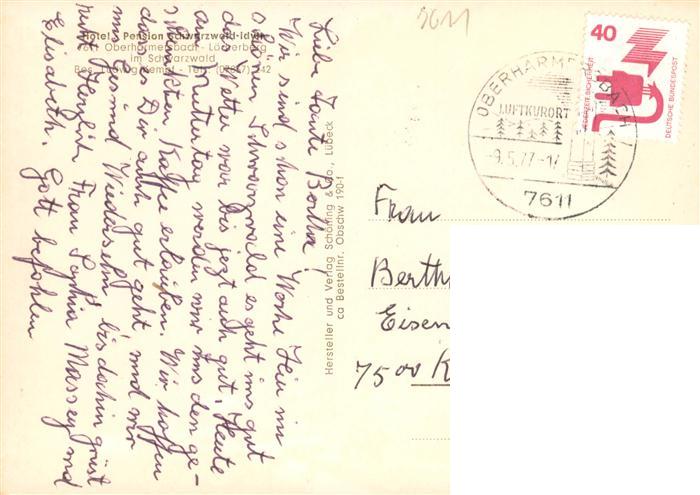 Hotel - Pension Schwarzwald-Idyll
7611 Oberharmersbach - Löcherberg
im Schwarzwald
Bes. Ludwig Kempf - Tel. (07837) 242
Liebe Tante Bertha!
Wir sind schon eine Woche hier im
schönen Schwarzwald es geht uns gut
das Wetter war bis jezt auch gut, Heute
am Muttertag werden wir uns den ge-
schenkten Kaffee erlauben. Wir hoffen
dass es Dir auch gut geht, und wir
uns Gesund Wiedersehn, bis dahin grüst
Herzlich Frau Massey und
Elisabeth. Gott befohlen
Hersteller und Verlag Schöning & Co., Lübeck
ca Bestellnr. Obschw 190-f
5611
OBERHARMERSBACH
LUFTKURORT
-9.5.77-1
7611
40
JEDERZEIT SICHERHEIT
DEUTSCHE BUNDESPOST
Frau
Berth
Eisen
7500 K